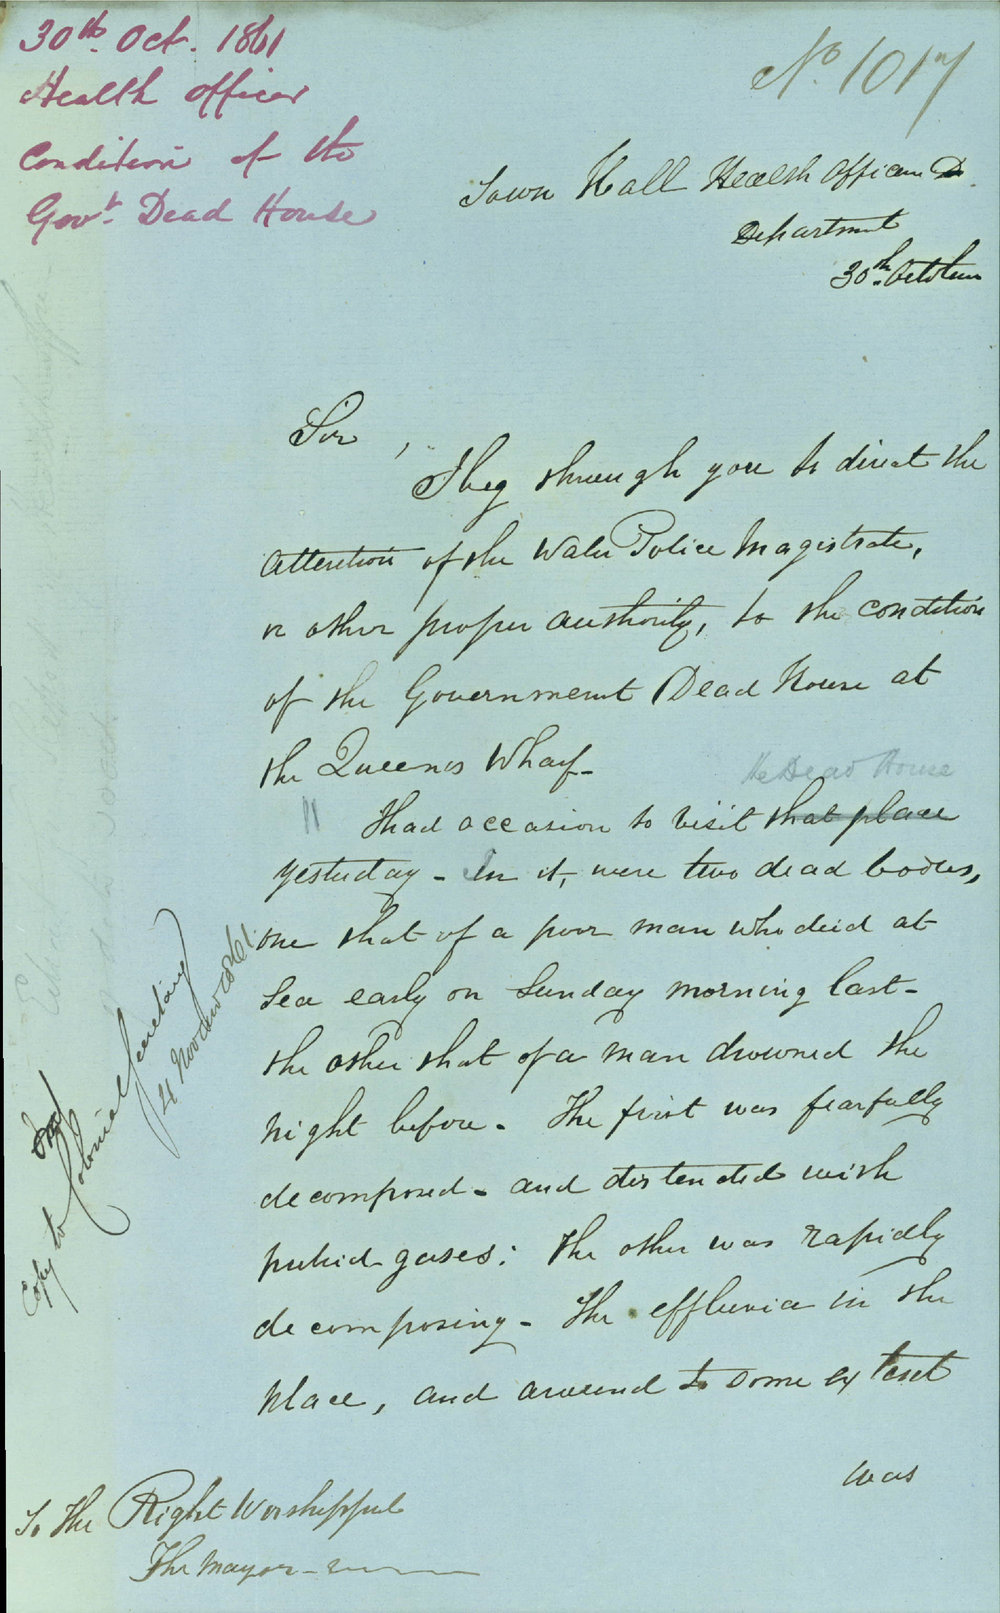 30th Oct. 1861
Health Officer
Condition of the
Govt. Dead House
No. 1017
Town Hall Health Officers
Department
30th October
Sir,
I beg through you to direct the
attention of the Water Police Magistrate,
or other proper authority, to the condition
of the Government Dead House at
the Queen's Wharf-
the Dead House
I had occasion to visit that place
yesterday - In it, were two dead bodies,
one that of a poor man who died at
Sea early on Sunday morning last-
the other that of a man drowned the
night before. The first was fearfully
decomposed - and distended with
putrid gases: the other was rapidly
decomposing - The effluvia in the
place, and around to some extent
was
To The Right Worshipful
The Mayor
Copy to Colonial Secretary
4 November 61